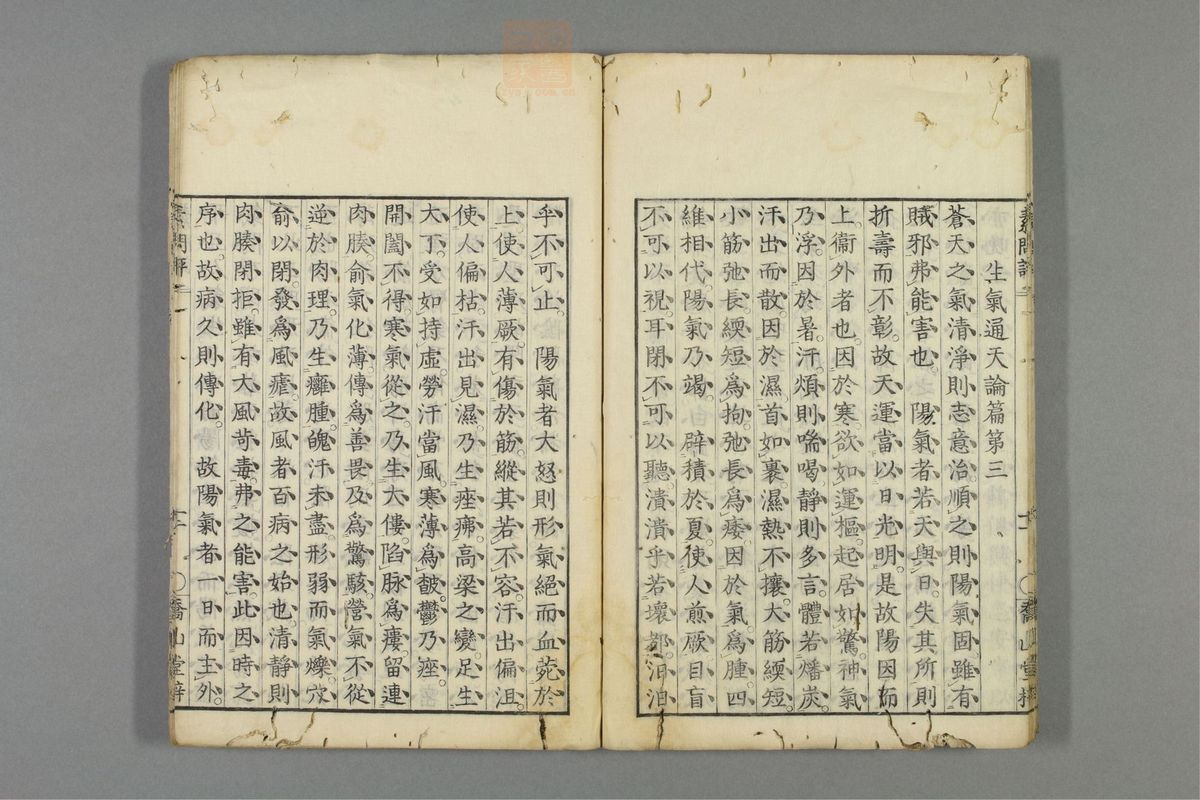 生氣通天論篇第三
蒼天之氣清淨則志意治。順之則陽氣固雖有
賊邪弗能害也。陽氣者若天與日。失其所則
折壽而不彰。故天運當以日光明。是故陽因而
上。衞外者也。因於寒。欲如運樞。起居如驚。神氣
乃浮。因於暑。汗。煩則喘喝靜則多言。體若燔炭。
汗出而散。因於濕首如裹濕熱不攘大筋緛短。
小筋弛長。緛短爲拘。弛長爲痿。因於氣。爲腫四
維相代。陽氣乃竭。辟積於夏。使人煎厥目盲
不可以視。耳閉不可以聽。潰潰乎若壞都。汩汩
乎不可止。陽氣者大怒則形氣絕而血菀於
上。使人薄厥。有傷於筋。縱其若不容。汗出偏沮。
使人偏枯。汗出見濕。乃生痤疿。高梁之變。足生
大丁。受如持虛。勞汗當風。寒薄爲皶。鬱乃痤。
開闔不得。寒氣從之。乃生大僂。陷脉爲瘻。留連
肉腠。俞氣化薄。傳爲善畏。及爲驚駭。營氣不從
逆於肉理。乃生癰腫。魄汗未盡。形弱而氣爍。穴
俞以閉。發爲風瘧。故風者百病之始也。清靜則
肉腠閉拒。雖有大風苛毒。弗之能害。此因時之
序也。故病久則傳化。故陽氣者一日而主外。